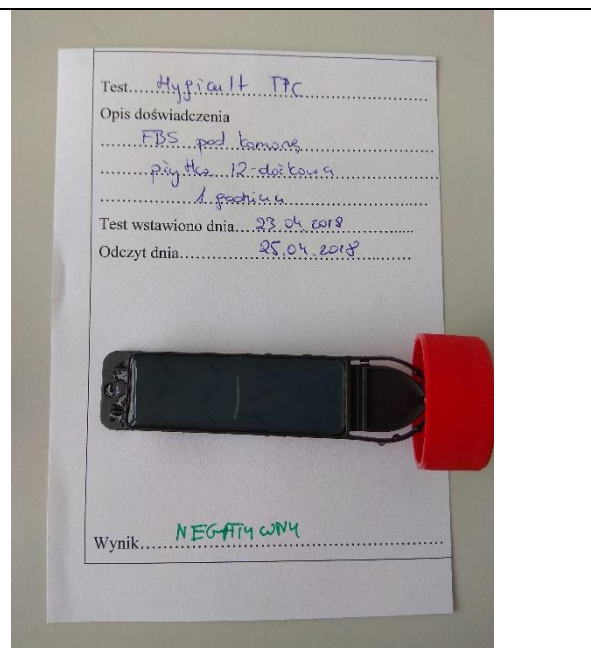 Test.....Hygicult TPC.....
Opis doświadczenia
.....FBS pod komorą.....
.....płytka 12-dołkowa.....
.....1 godzina.....
Test wstawiono dnia.....23.04.2018.....
Odczyt dnia.....25.04.2018.....
Wynik.....NEGATYWNY.....